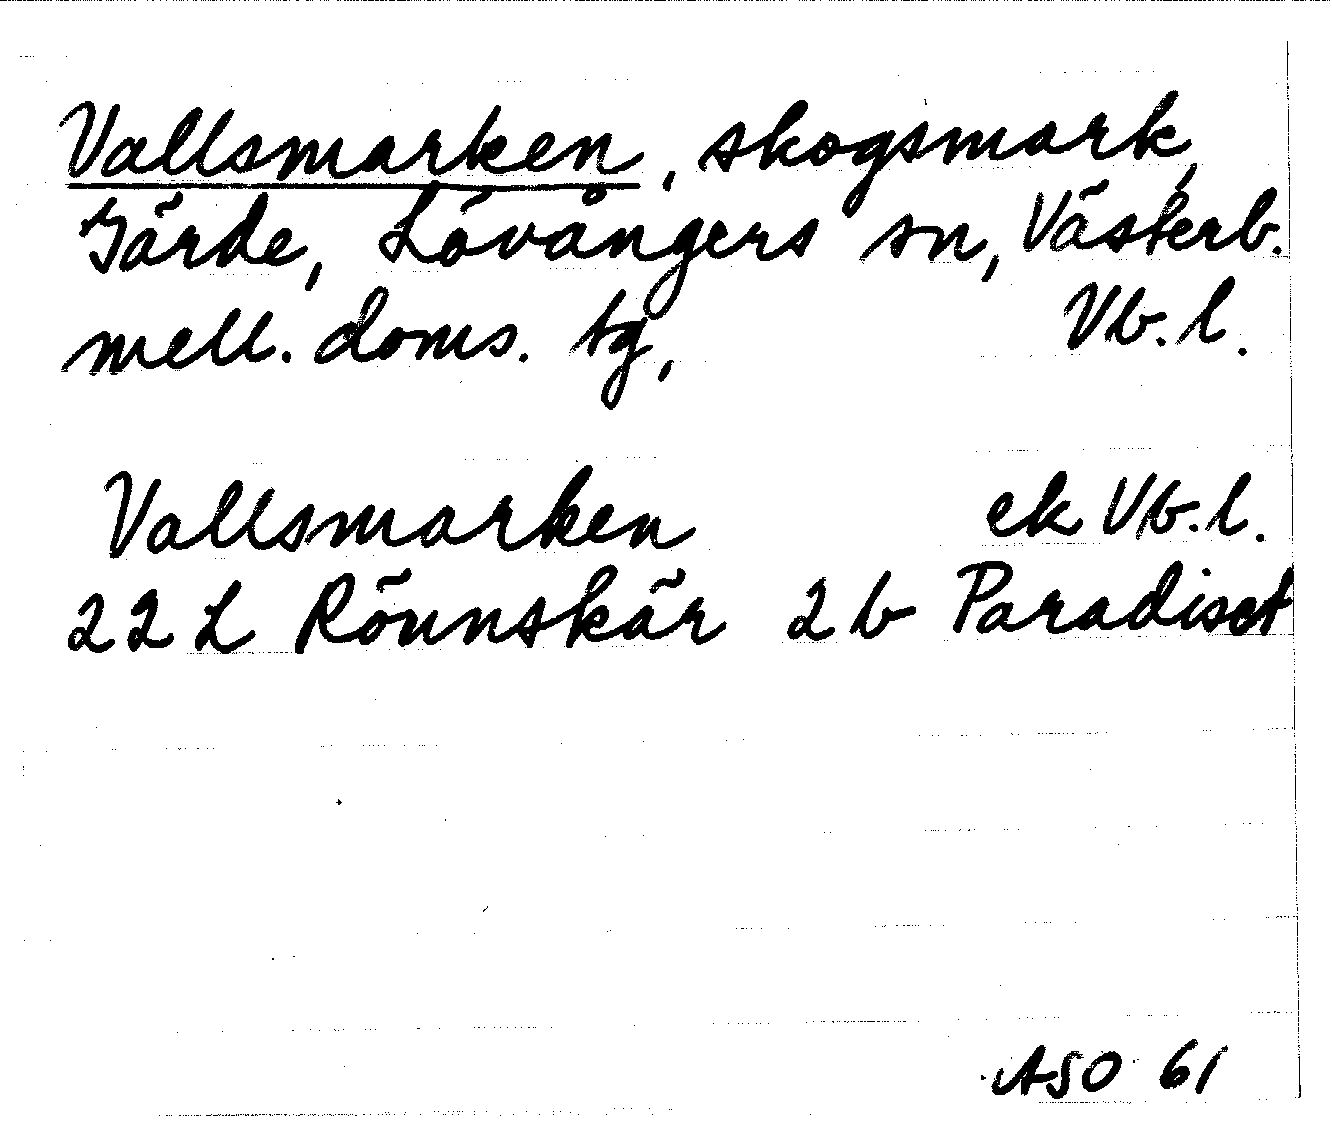 Vallsmarken, skogsmark,
Gärde, Lövångers sn, Västerb.
mell. doms. tg, Vb. l.
Vallsmarken ek Vb. l.
22 L Rönnskär 2 b Paradiset
ASO 61